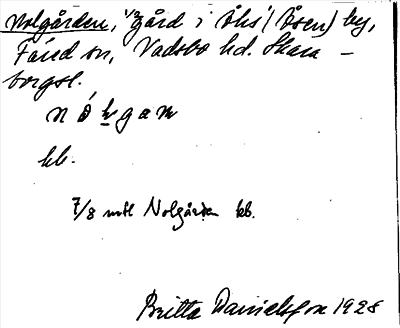 Nolgården, 1/2 gård i Ås (Åsen) by,
Färed sn, Vadsbo hd. Skara-
borgsl.
kb.
7/8 mtl Nolgården kb.
Britta Danielsson 1928